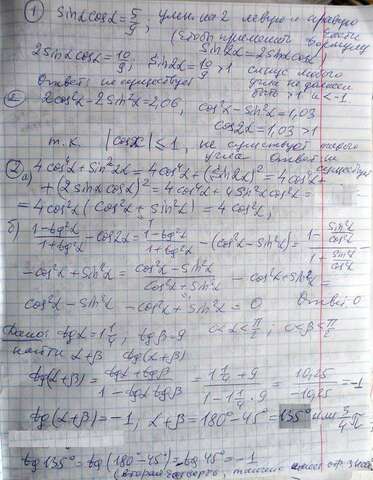 ① sinα cosα = 5/9; умнож. на 2 левую и правую части
(чтобы применить формулу sin2α = 2sinα cosα)
2sinα cosα = 10/9; sin2α = 10/9 > 1 синус любого
угла не должен
быть > 1 и < -1
Ответ: не существует
2cos²α - 2sin²α = 2,06, cos²α - sin²α = 1,03
cos2α = 1,03 > 1
т.к. |cosα| ≤ 1, не существует такого
угла Ответ: не существует
② а) 4cos⁴α + sin²2α = 4cos⁴α + (sin2α)² = 4cos⁴α +
+ (2sinα cosα)² = 4cos⁴α + 4sin²α cos²α =
= 4cos²α (cos²α + sin²α) = 4cos²α,
б) (1 - tg²α)/(1 + tg²α) - cos2α = (1 - tg²α)/(1 + tg²α) - (cos²α - sin²α) = (1 - sin²α/cos²α)/(1 + sin²α/cos²α)
- cos²α + sin²α = (cos²α - sin²α)/(cos²α + sin²α) - cos²α + sin²α =
cos²α - sin²α - cos²α + sin²α = 0 Ответ: 0
Дано: tgα = 1 1/4, tgβ = 9 0 < α < π/2, 0 < β < π/2
найти α + β tg(α + β)
tg(α + β) = (tgα + tgβ)/(1 - tgα tgβ) = (1 1/4 + 9)/(1 - 1 1/4 · 9) = 10,25/-10,25 = -1
tg(α + β) = -1, α + β = 180° - 45° = 135° или 3/4 π
tg 135° = tg(180° - 45°) = -tg 45° = -1
(вторая четверть, тангенс имеет отр. знак)